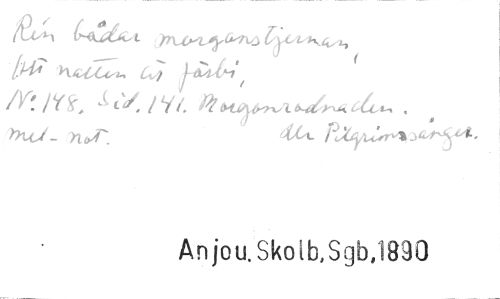 Ren bådar morganstjernan,
Att natten är förbi,
No: 148. Sid. 141. Morgonrodnaden.
mel-not. Ur Pilgrimssånger.
Anjou, Skolb, Sgb, 1890